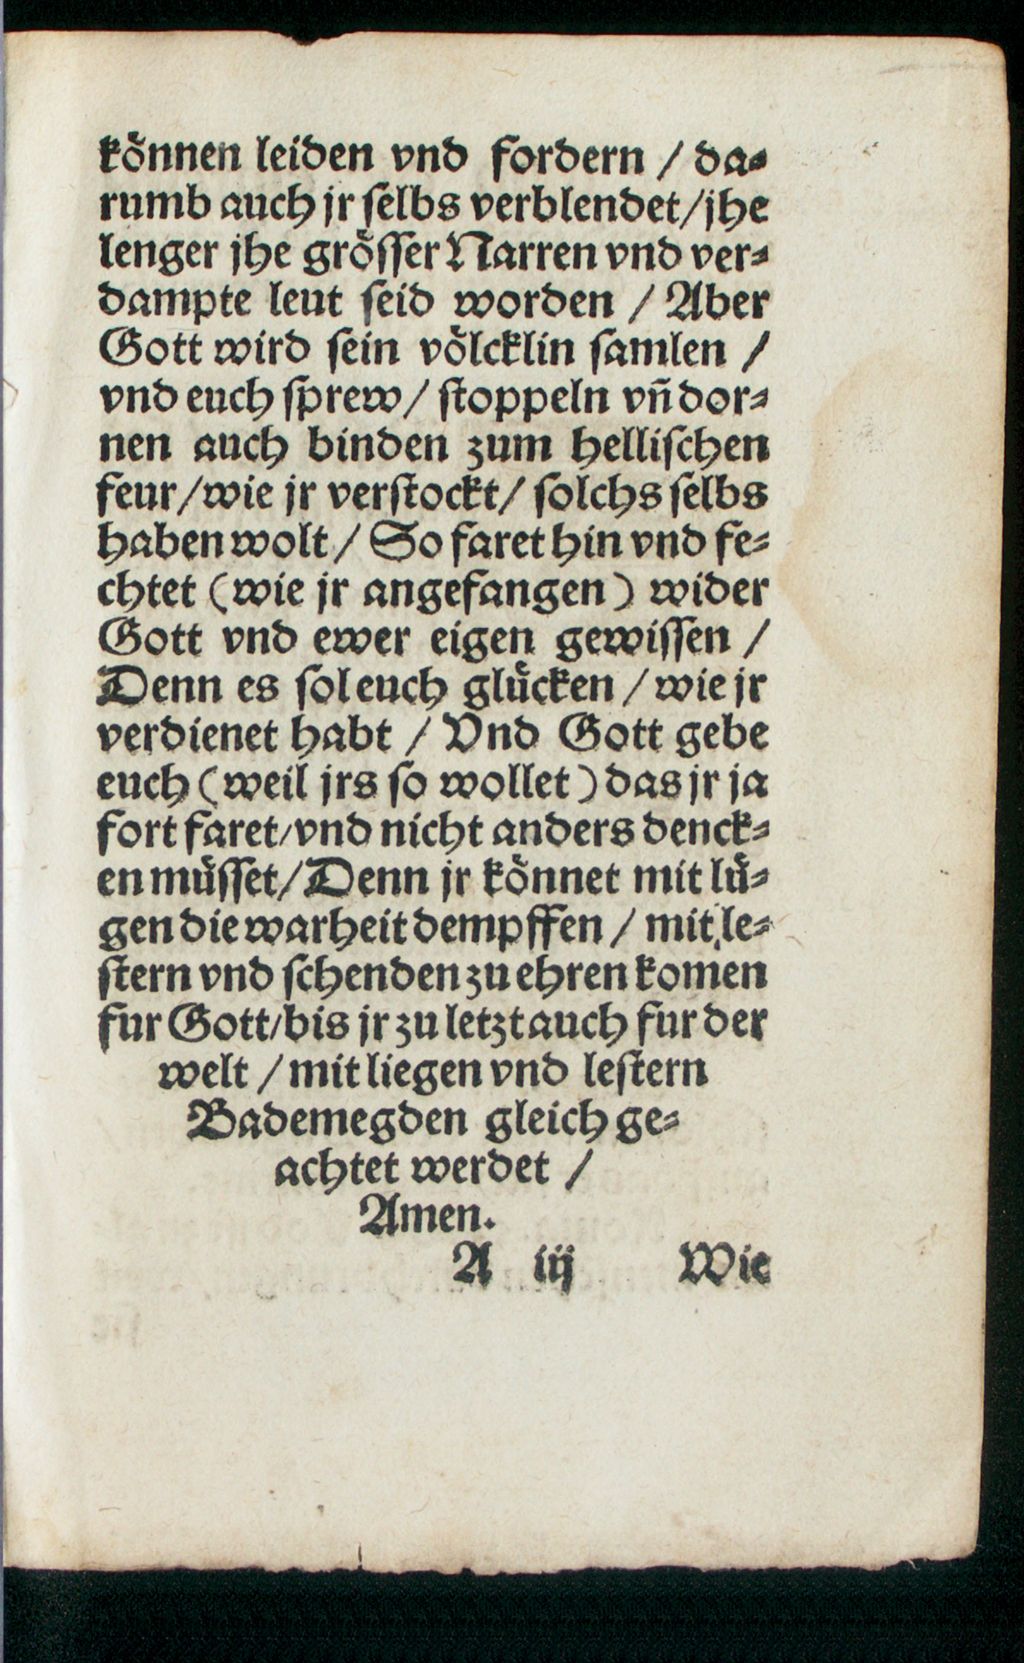 können leiden vnd fordern / da⸗
rumb auch jr selbs verblendet/jhe
lenger jhe grösser Narren vnd ver⸗
dampte leut seid worden / Aber
Gott wird sein völcklin samlen /
vnd euch sprew/ stoppeln vñ dor⸗
nen auch binden zum hellischen
feur/wie jr verstockt/ solchs selbs
haben wolt/ So faret hin vnd fe⸗
chtet (wie jr angefangen) wider
Gott vnd ewer eigen gewissen /
Denn es sol euch glücken / wie jr
verdienet habt / Vnd Gott gebe
euch (weil jrs so wollet) das jr ja
fort faret/vnd nicht anders denck⸗
en müsset/Denn jr könnet mit lü⸗
gen die warheit dempffen / mit le⸗
stern vnd schenden zu ehren komen
fur Gott/bis jr zu letzt auch fur der
welt / mit liegen vnd lestern
Bademegden gleich ge⸗
achtet werdet /
Amen.
A iij Wie